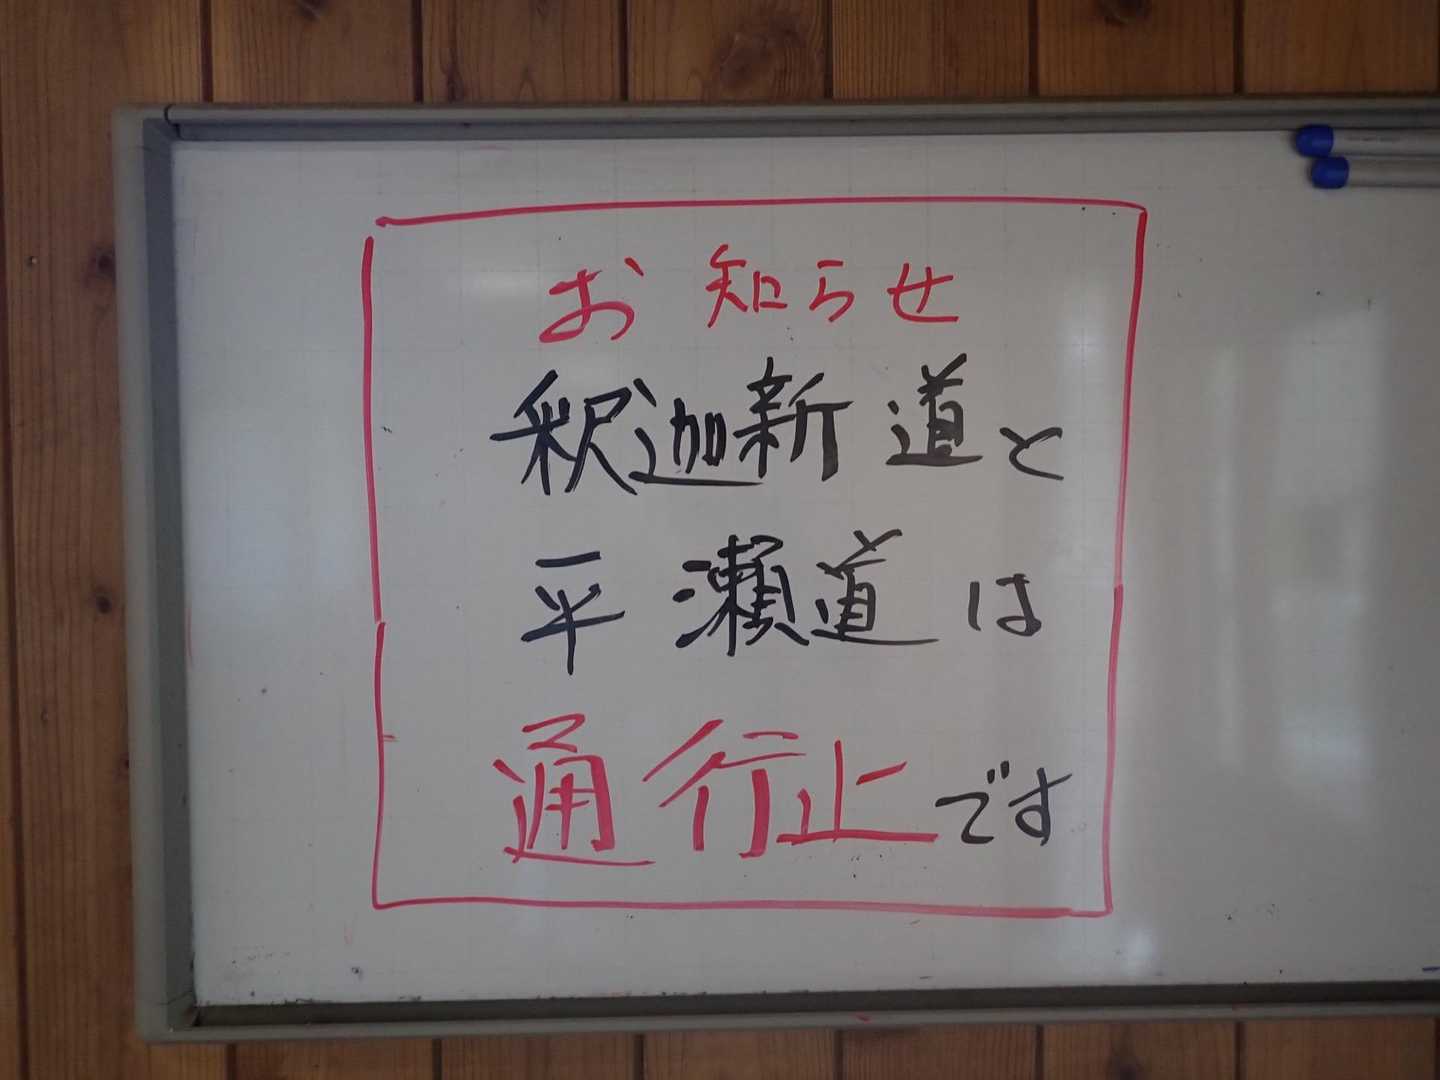 お知らせ
釈迦新道と
平瀬道は
通行止です